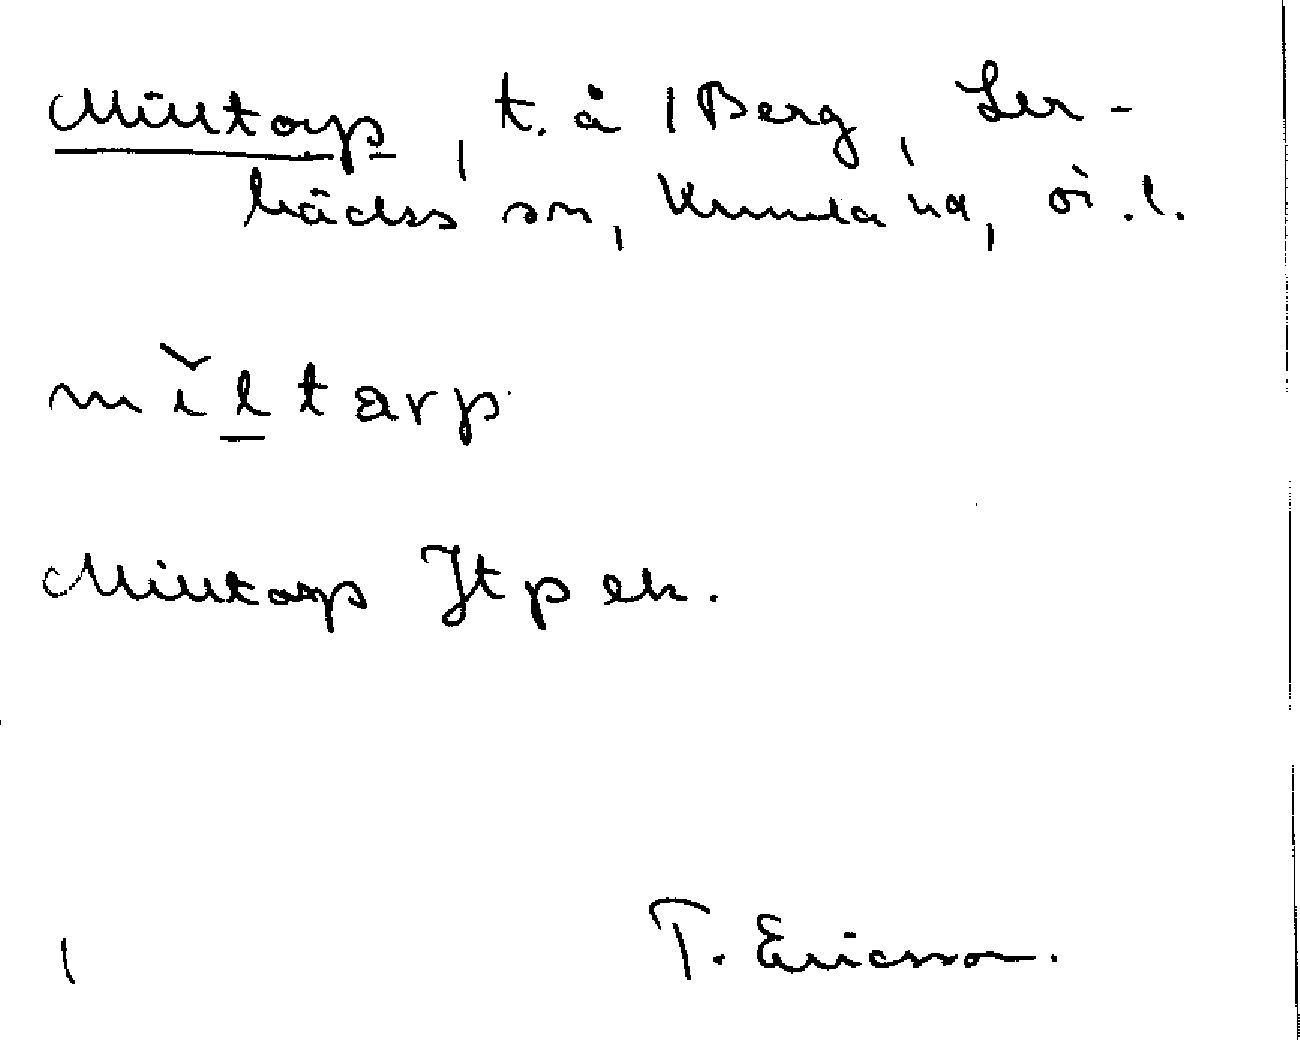 Milltorp, t. å 1 Berg, Ler-
bäcks sn, Kumla hd, ör. l.
mĭltarp
Milltorp Jtp ek.
1 T. Ericsson.